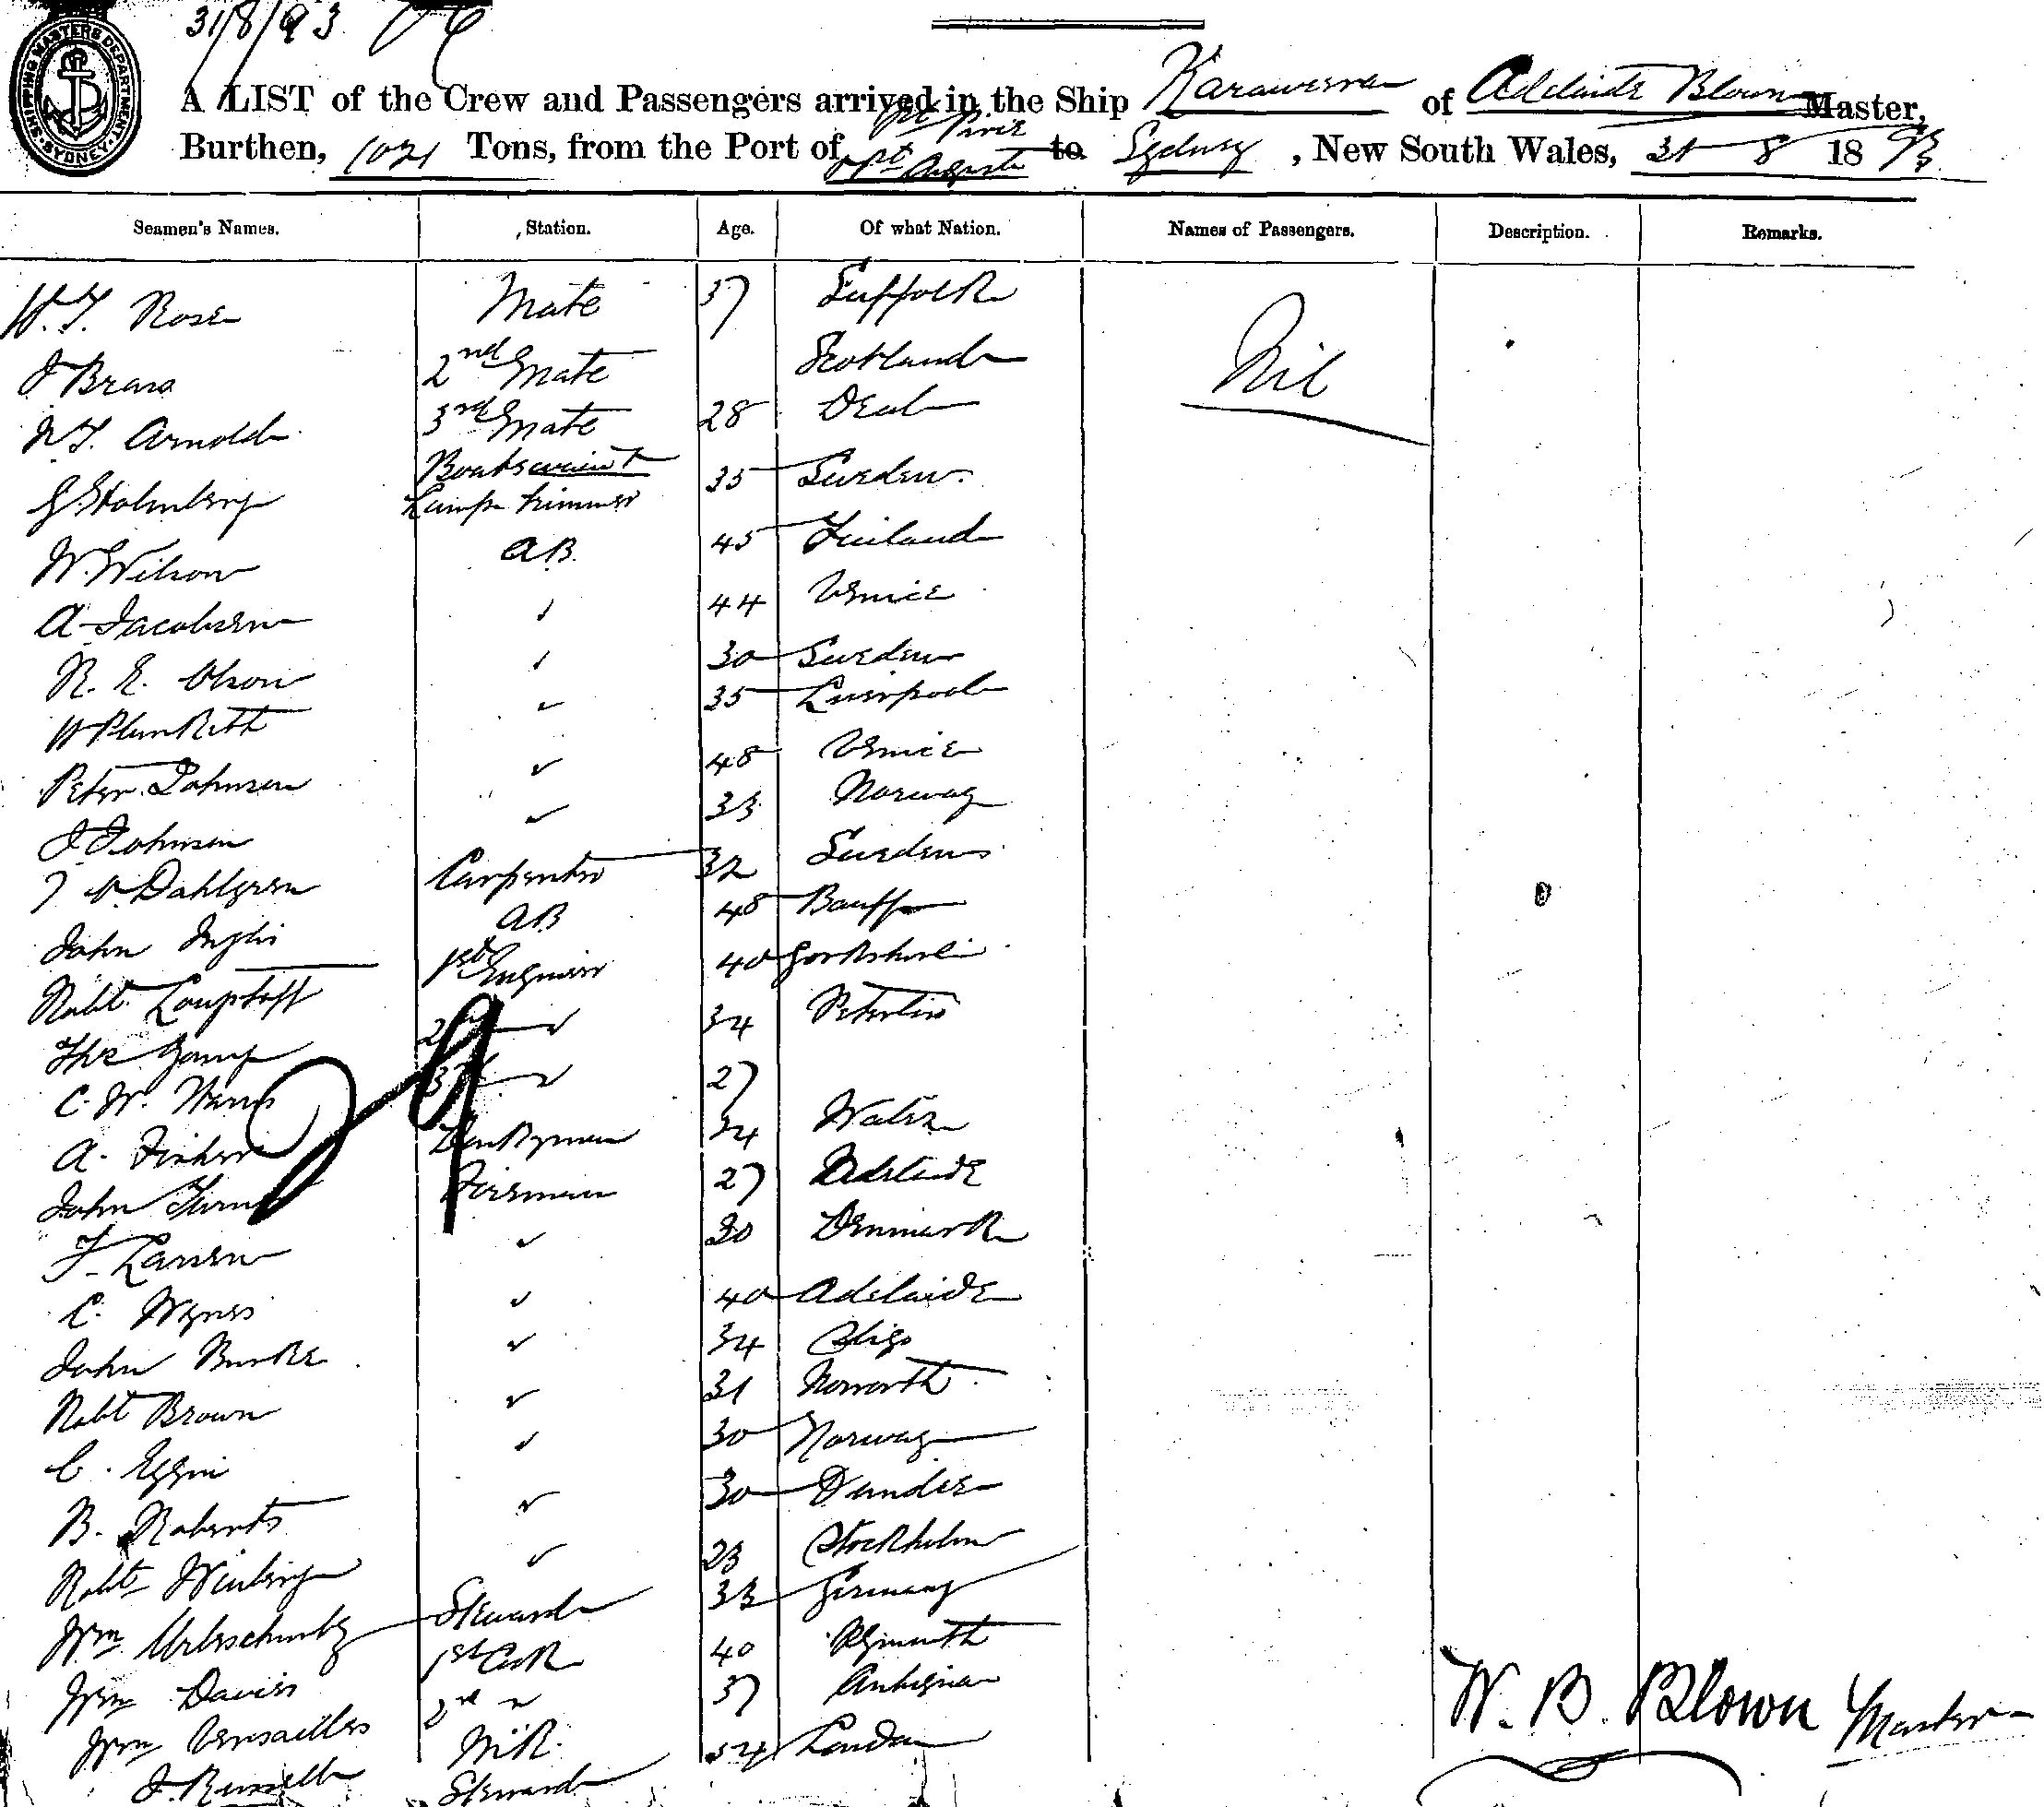 31/8/93
SHIPPING MASTERS DEPARTMENT SYDNEY
A LIST of the Crew and Passengers arrived in the Ship Karaweera of Adelaide Blown Master,
Burthen, 1021 Tons, from the Port of Pt Pirie & Pt Augusta to Sydney, New South Wales, 31 8 1893
Seamen's Names. Station. Age. Of what Nation. Names of Passengers. Description. Remarks.
Rose Mate 37 Suffolk Nil
J 2nd Mate Scotland
Arnold 3rd Mate 28 Deal
G. Holmberg Boatswain & Lamp trimmer 35 Sweden.
W. Wilson A.B. 45 Finland
A Jacobsen ✓ 44 Venice
R. E. Olson ✓ 30 Sweden
Plunkett ✓ 35 Liverpool
Peter Johnsen ✓ 48 Venice
J Johnsen ✓ 33 Norway
Dahlgren Carpenter 32 Sweden
John Inglis AB 48 Banff
Robt. 1st Engineer 40 Yorkshire
2nd ✓ 34
C. W. 3rd ✓ 27
A. Fisher Donkyman 34 Wales
John Fireman 27 Adelaide
F. Larsen ✓ 30 Denmark
C. ✓ 40 Adelaide
John Burke ✓ 34 Sligo
Robt Brown ✓ 31
C. ✓ 30 Norway
B. Roberts ✓ 30 Dundee
Robt ✓ 23 Stockholm
Wm Steward 33 Germany
Wm Davies 1st Cook 40 Plymouth
Wm Versailles 2nd ✓ 37 Antigua
J. Russell Steward 54 London
W. B. Blown Master